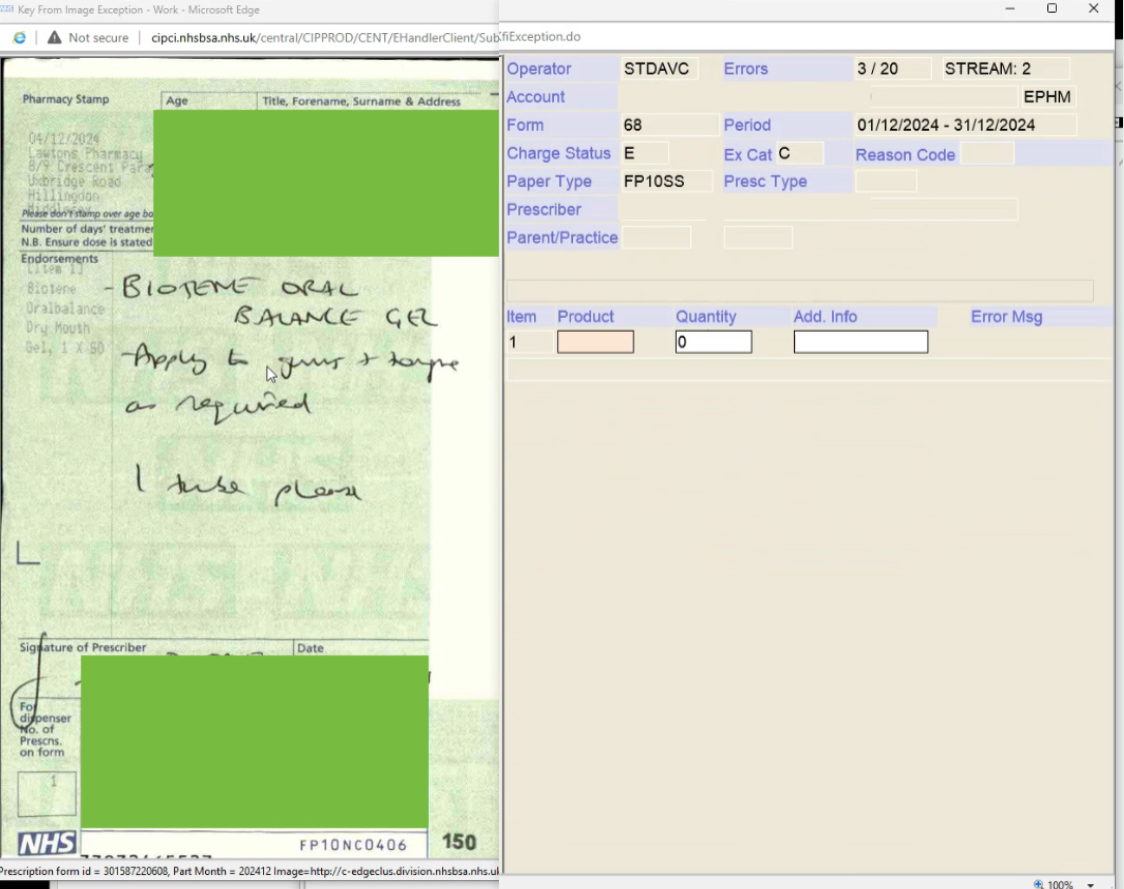 Key From Image Exception - Work - Microsoft Edge
Not secure
cipci.nhsbsa.nhs.uk/central/CIPPROD/CENT/EHandlerClient/Sub
fiException.do
Pharmacy Stamp
Age
Title, Forename, Surname & Address
04/12/2024
Lawtons Pharmacy
8/9 Crescent Para
Uxbridge Road
Hillingdon
Middlesex
Please don't stamp over age bo
Number of days' treatmen
N.B. Ensure dose is stated
Endorsements
[Item 1]
Biotene
Oralbalance
Dry Mouth
Gel, 1 X 50
- BIOTENE ORAL
BALANCE GEL
- Apply to gums + tongue
as required
1 tube please
Signature of Prescriber
Date
For
dispenser
No. of
Prescns.
on form
1
NHS
FP10NC0406
150
Prescription form id = 301587220608, Part Month = 202412 Image=http://c-edgeclus.division.nhsbsa.nhs.uk
Operator STDAVC Errors 3 / 20 STREAM: 2
Account EPHM
Form 68 Period 01/12/2024 - 31/12/2024
Charge Status E Ex Cat C Reason Code
Paper Type FP10SS Presc Type
Prescriber
Parent/Practice
Item Product Quantity Add. Info Error Msg
1 0
100%